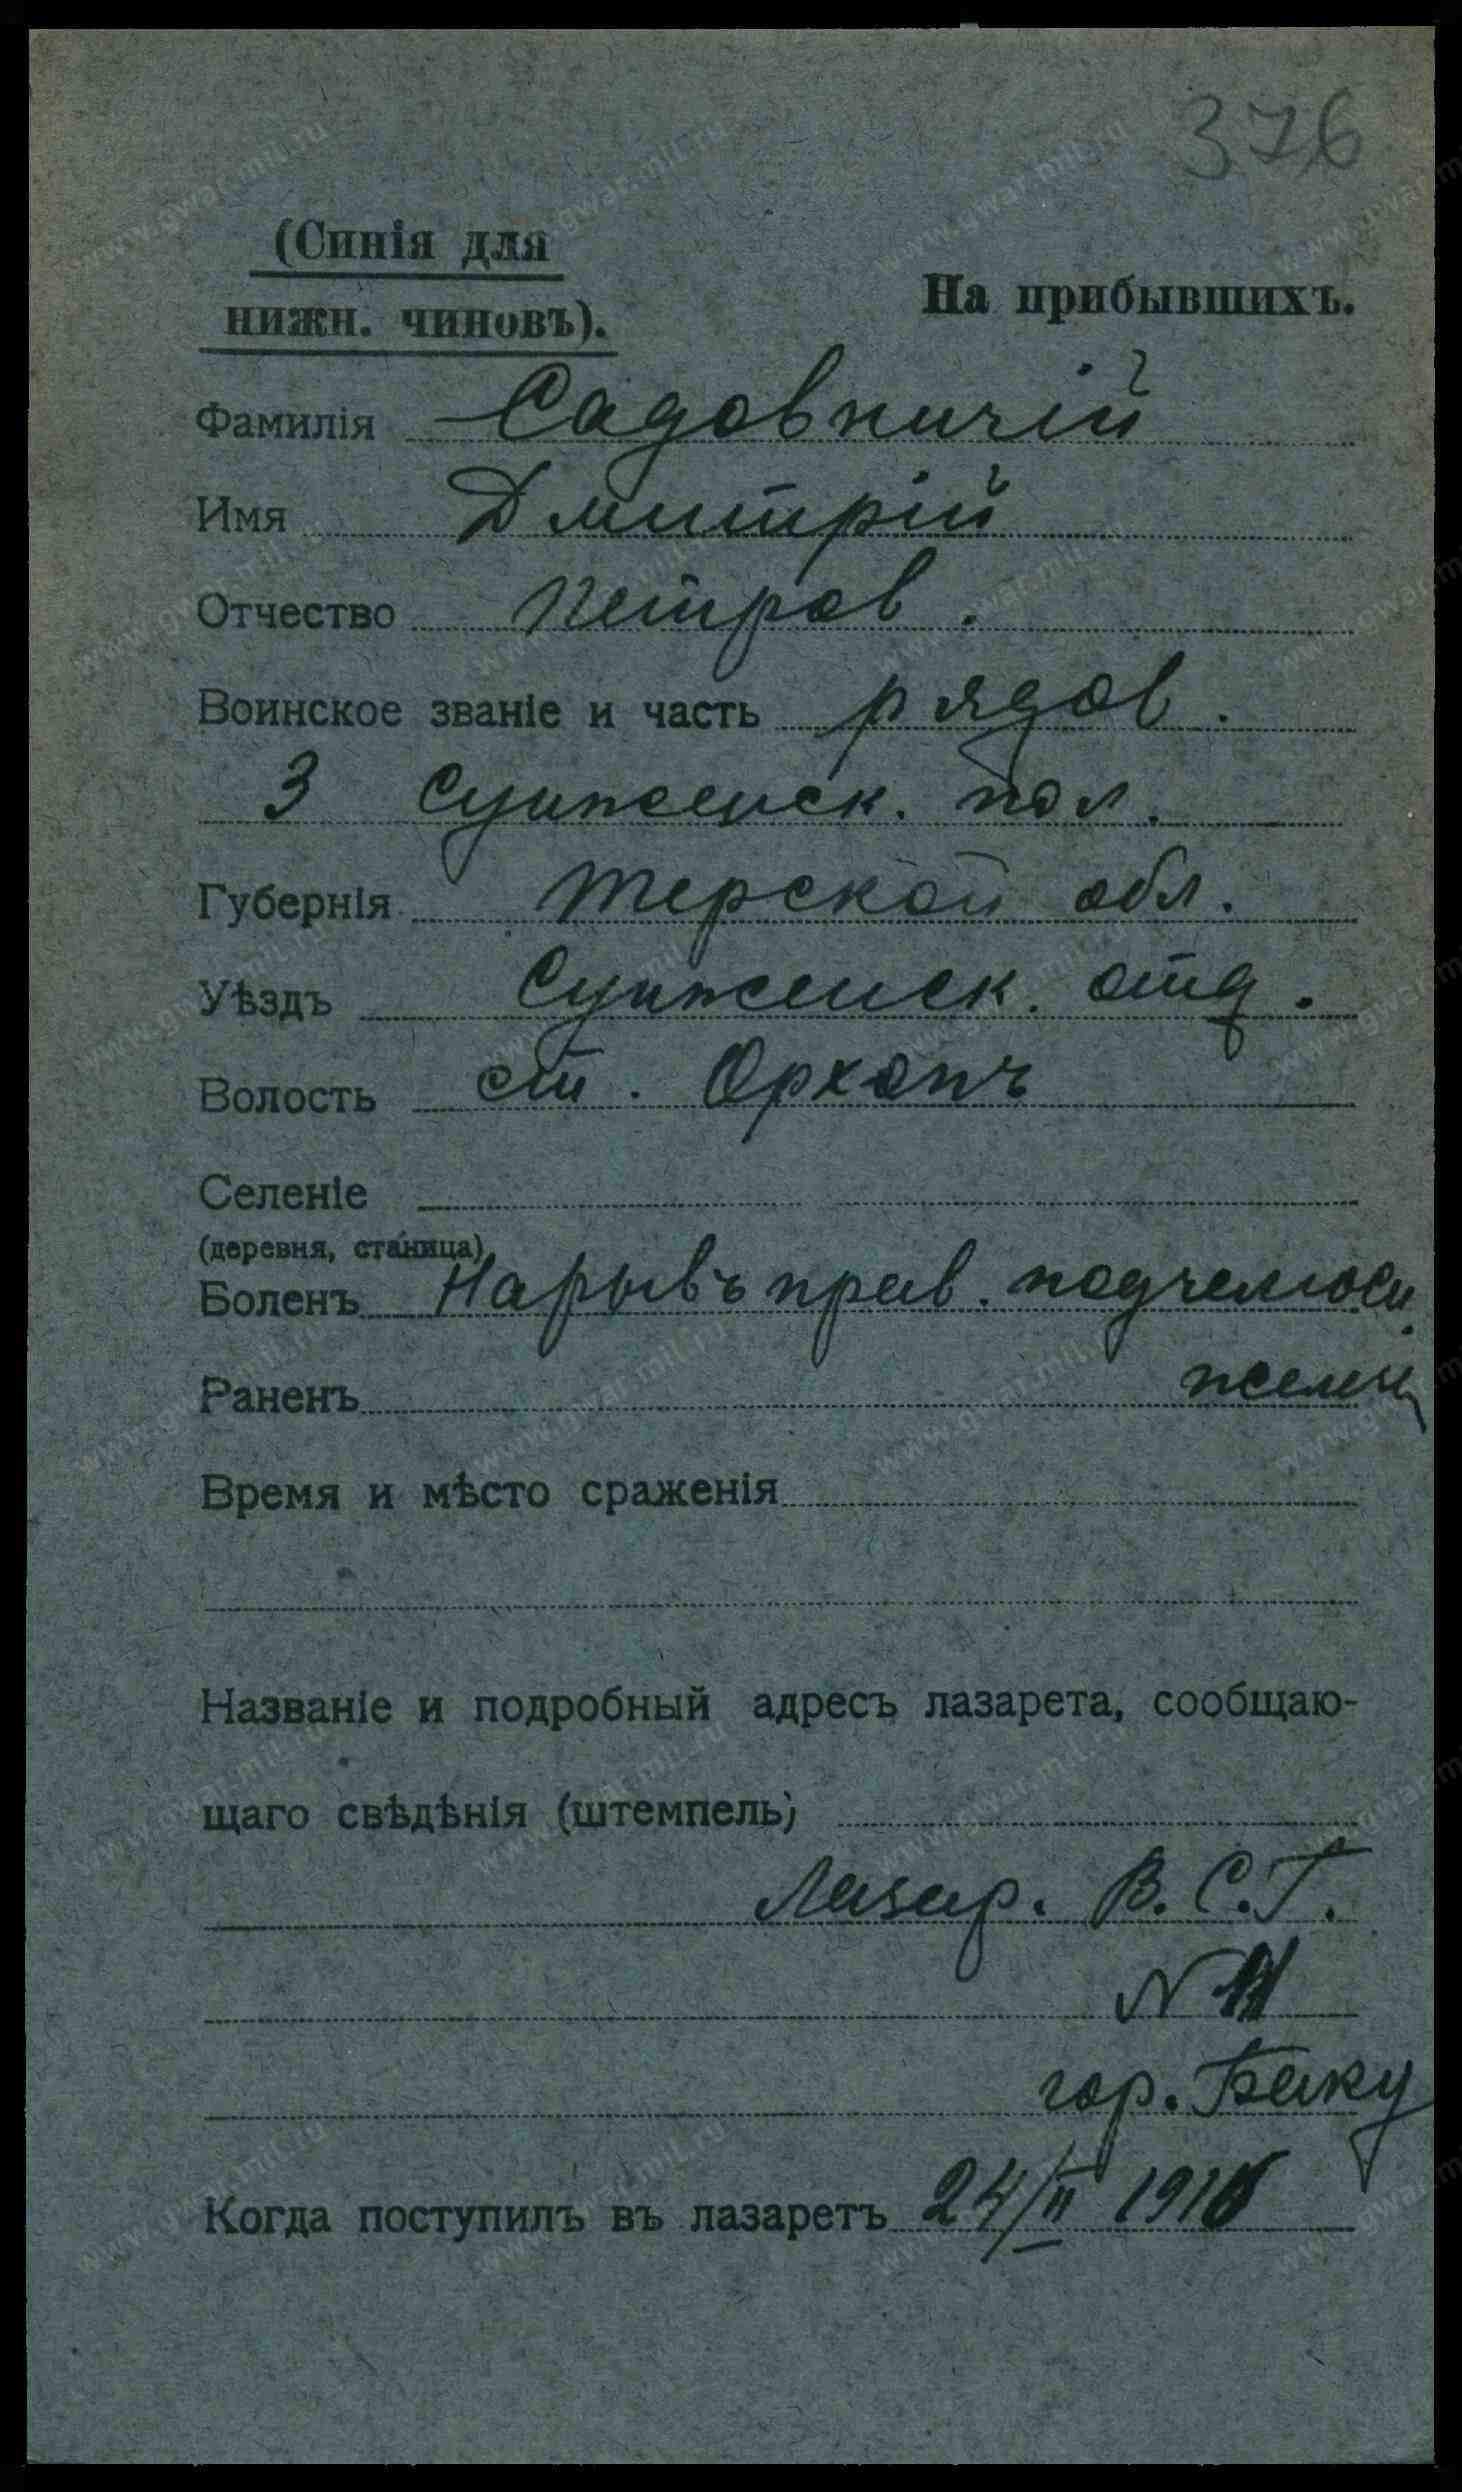 376
(Синія для
нижн. чиновъ).
На прибывшихъ.
Фамилія Садовничій
Имя Дмитрій
Отчество Петров.
Воинское званіе и часть рядов.
3 Сунженск. пол.
Губернія Терской обл.
Уѣздъ Сунженск. отд.
Волость ст. Орхопъ
Селеніе
(деревня, станица)
Боленъ Нарывъ прав. подчелюсн.
Раненъ желез
Время и мѣсто сраженія
Названіе и подробный адресъ лазарета, сообщаю-
щаго свѣдѣнія (штемпель)
Лазар. В.С.Г.
N 11
гор. Баку
Когда поступилъ въ лазаретъ 24/II 1916